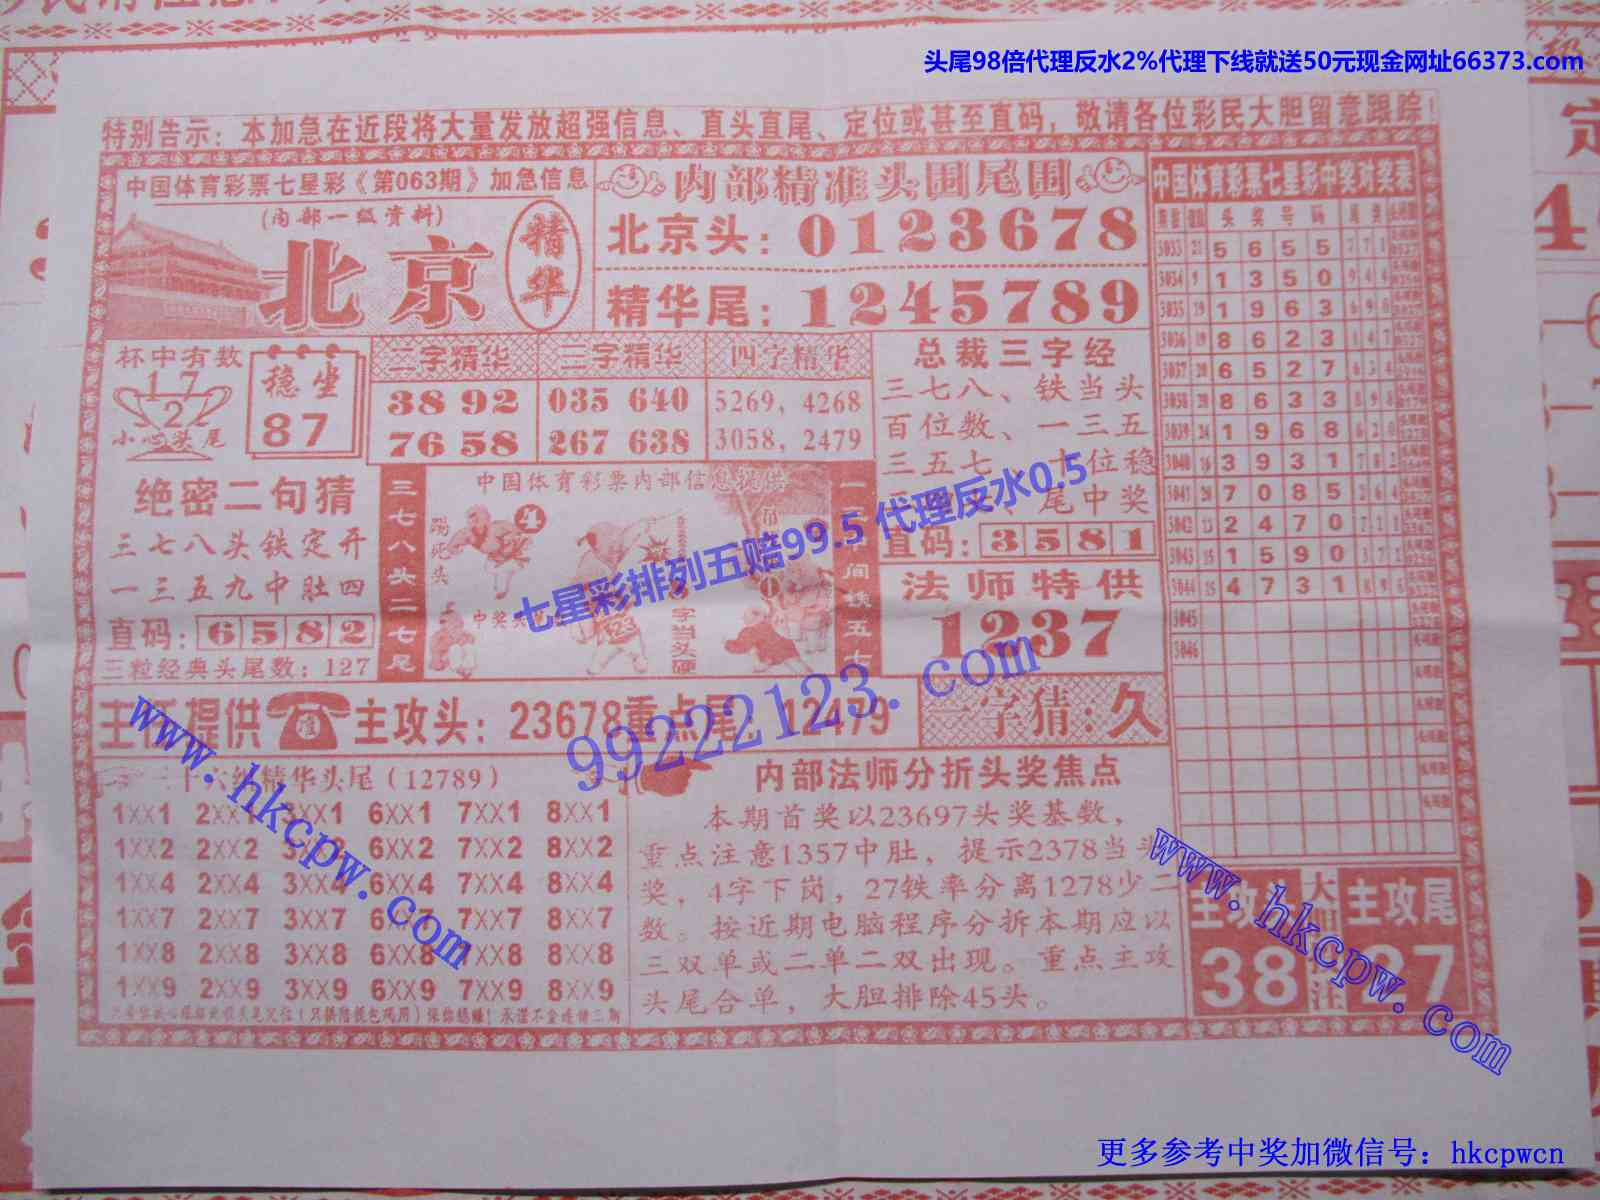 头尾98倍代理反水2%代理下线就送50元现金网址66373.com
特别告示：本加急在近段将大量发放超强信息、直头直尾、定位或甚至直码，敬请各位彩民大胆留意跟踪！
中国体育彩票七星彩《第063期》加急信息
(内部一级资料)
北京
精华
内部精准头围尾围
北京头：0123678
精华尾：1245789
杯中有数
17
2
小心头尾
稳坐
87
二字精华
38 92
76 58
三字精华
035 640
267 638
四字精华
5269，4268
3058，2479
总裁三字经
三七八、铁当头
百位数、一三五
三五七、十位稳
尾中奖
直码：3581
绝密二句猜
三七八头铁定开
一三五九中肚四
直码：6582
三粒经典头尾数：127
三七八头二七尾
中国体育彩票内部信息提供
踢死头
4
23
字当头硬
法师特供
1237
主任提供
主攻头：23678重点尾：12479
一字猜：久
精华头尾(12789)
1XX1 2XX1 3XX1 6XX1 7XX1 8XX1
1XX2 2XX2 3XX2 6XX2 7XX2 8XX2
1XX4 2XX4 3XX4 6XX4 7XX4 8XX4
1XX7 2XX7 3XX7 6XX7 7XX7 8XX7
1XX8 2XX8 3XX8 6XX8 7XX8 8XX8
1XX9 2XX9 3XX9 6XX9 7XX9 8XX9
内部法师分折头奖焦点
本期首奖以23697头奖基数，
重点注意1357中肚，提示2378当头
奖，4字下岗，27铁率分离1278少二
数。按近期电脑程序分拆本期应以
三双单或二单二双出现。重点主攻
头尾合单，大胆排除45头。
中国体育彩票七星彩中奖对奖表
头奖号码
3033 5655
3034 1350
3035 1963
3036 8623
3037 6527
3038 8633
3039 1968
3040 3931
3041 7085
3042 2470
3043 1590
3044 4731
3045
3046
主攻头
38
主攻尾
27
七星彩排列五赔99.5 代理反水0.5
99222123.com
www.hkcpw.com
www.hkcpw.com
更多参考中奖加微信号：hkcpwcn